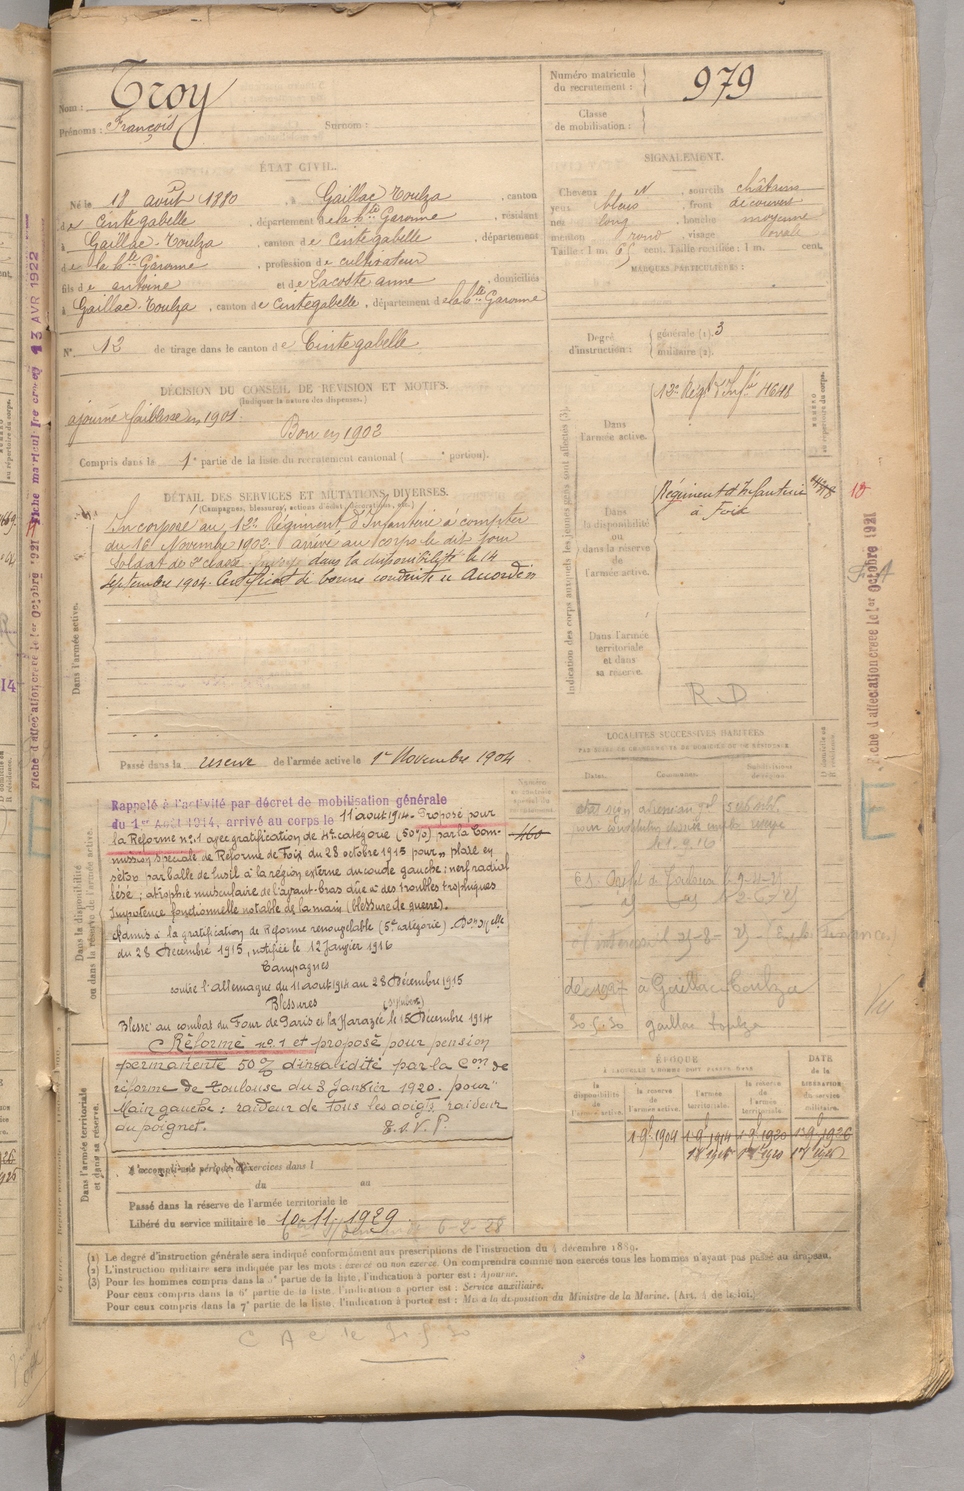 Nom : Troy
Prénoms : François Surnom :
Numéro matricule du recrutement : 979
Classe de mobilisation :
ÉTAT CIVIL.
Né le 18 août 1880, à Gaillac Toulza, canton
de Cintegabelle, département de la hte Garonne, résidant
à Gaillac-Toulza, canton de Cintegabelle, département
de la hte Garonne, profession de cultivateur
fils de antoine et de Lacoste anne, domiciliés
à Gaillac-Toulza, canton de Cintegabelle, département de la hte Garonne
N° 12 de tirage dans le canton de Cintegabelle
SIGNALEMENT.
Cheveux, sourcils châtains
yeux bleus, front découvert
nez long, bouche moyenne
menton rond, visage ovale
Taille : 1 m. 65 cent. Taille rectifiée : 1 m. cent.
MARQUES PARTICULIÈRES :
Degré d'instruction : générale (1). 3
militaire (2).
DÉCISION DU CONSEIL DE REVISION ET MOTIFS.
(Indiquer la nature des dispenses.)
ajourné faiblesse en 1901.
Bon en 1902
Compris dans la 1e partie de la liste du recrutement cantonal ( e portion).
DÉTAIL DES SERVICES ET MUTATIONS DIVERSES.
(Campagnes, blessures, actions d'éclat, décorations, etc.)
Dans l'armée active.
Incorporé au 12e Régiment d'Infanterie à compter
du 16 Novembre 1902. arrivé au corps le dit jour
Soldat de 2e classe. passé dans la disponibilité le 14
septembre 1904. Certificat de bonne conduite " Accordé "
Passé dans la réserve de l'armée active le 1er Novembre 1904
Indication des corps auxquels les jeunes gens sont affectés (3).
Dans l'armée active. 12e Régt d'Infie 4648
NUMÉRO au répertoire du corps.
Dans la disponibilité ou dans la réserve de l'armée active.
Régiment d'Infanterie
à Foix
Dans l'armée territoriale et dans sa réserve.
R D
Fiche matricule
13 AVR 1922
Fiche d'affectation créée le 1er Octobre 1921
Fiche d'affectation créée le 1er Octobre 1921
Dans la disponibilité ou dans la réserve de l'armée active.
Rappelé à l'activité par décret de mobilisation générale
du 1er Août 1914, arrivé au corps le 11 août 1914. Proposé pour
la Réforme n° 1 avec gratification de 4e catégorie (50%) par la Com-
mission Spéciale de Réforme de Foix du 28 octobre 1915 pour " plaie en
séton par balle de fusil à la région externe du coude gauche : nerf radial
lésé ; atrophie musculaire de l'avant-bras due à des troubles trophiques
Impotence fonctionnelle notable de la main (blessure de guerre).
Admis à la gratification de Réforme renouvelable (5e catégorie).
du 28 Décembre 1915, notifiée le 12 Janvier 1916
Campagnes
contre l'allemagne du 11 août 1914 au 28 Décembre 1915
Blessures
Blessé au combat du Four de Paris et la Harazée le 15 Décembre 1914
Réformé n° 1 et proposé pour pension
permanente 50% d'invalidité par la Con de
réforme de Toulouse du 3 Janvier 1920. pour "
Main gauche : raideur de tous les doigts raideur
au poignet. T.S.V.P.
460
Dans l'armée territoriale et dans sa réserve.
A accompli une période d'exercices dans l
du au
Passé dans la réserve de l'armée territoriale le
Libéré du service militaire le 10-11-1929
6-2-28
LOCALITÉS SUCCESSIVES HABITÉES
PAR SUITE DE CHANGEMENT DE DOMICILE OU DE RÉSIDENCE
Dates. Communes. Subdivisions de région.
décédé à Gaillac Toulza
30.5.30 gaillac toulza
ÉPOQUE
À LAQUELLE L'HOMME DOIT PASSER DANS
la disponibilité de l'armée active. la réserve de l'armée active. l'armée territoriale. la réserve de l'armée territoriale.
DATE de la LIBÉRATION du service militaire.
1-9bre 1904 1-9bre 1914 1-9bre 1920 1-9bre 1926
(1) Le degré d'instruction générale sera indiqué conformément aux prescriptions de l'instruction du 4 décembre 1889.
(2) L'instruction militaire sera indiquée par les mots : exercé ou non exercé. On comprendra comme non exercés tous les hommes n'ayant pas passé au drapeau.
(3) Pour les hommes compris dans la 3e partie de la liste, l'indication à porter est : Ajourné.
Pour ceux compris dans la 6e partie de la liste, l'indication à porter est : Service auxiliaire.
Pour ceux compris dans la 7e partie de la liste, l'indication à porter est : Mis à la disposition du Ministre de la Marine. (Art. 4 de la loi.)